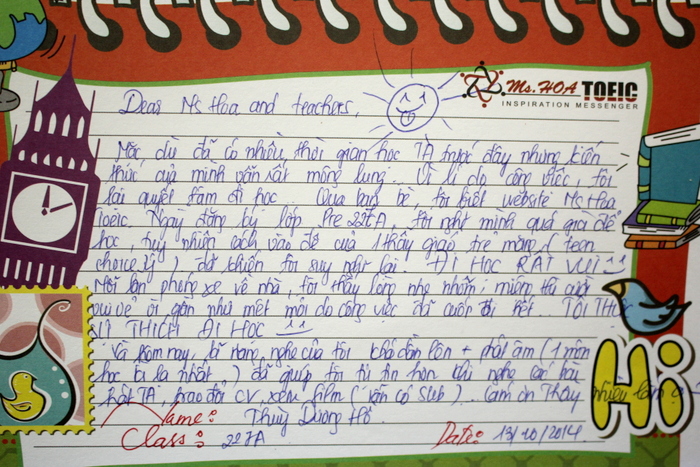 Ms. HOA TOEIC
INSPIRATION MESSENGER
Dear Ms Hoa and teachers,
Mặc dù đã có nhiều thời gian học TA trước đây nhưng kiến
thức của mình vẫn rất mông lung... Vì lí do công việc, tôi
lại quyết tâm đi học... Qua bạn bè, tôi biết website Ms Hoa
Toeic. Ngày đăng ký lớp Pre 227A, tôi nghĩ mình quá già để
học, tuy nhiên cách vào đề của 1 thầy giáo trẻ măng (teen
choice lý) đã khiến tôi suy nghĩ lại. ĐI HỌC RẤT VUI
Mỗi lần phóng xe về nhà, tôi thấy lòng nhẹ nhõm; miệng thì cười
vui vẻ ơi, gần như mệt mỏi do công việc đã cuốn đi hết... TÔI THỰC
SỰ THÍCH ĐI HỌC
Và hôm nay, kĩ năng nghe của tôi khá dần lên + phát âm (1 môn
học kì lạ nhất) đã giúp tôi tự tin hơn khi nghe các bài
hát TA, trao đổi CV, xem film (vẫn có sub)... Cám ơn Thầy nhiều lắm ạ
Name: Thuỳ Dương Hồ.
Class: 227A
Date: 13/10/2014.
Hi